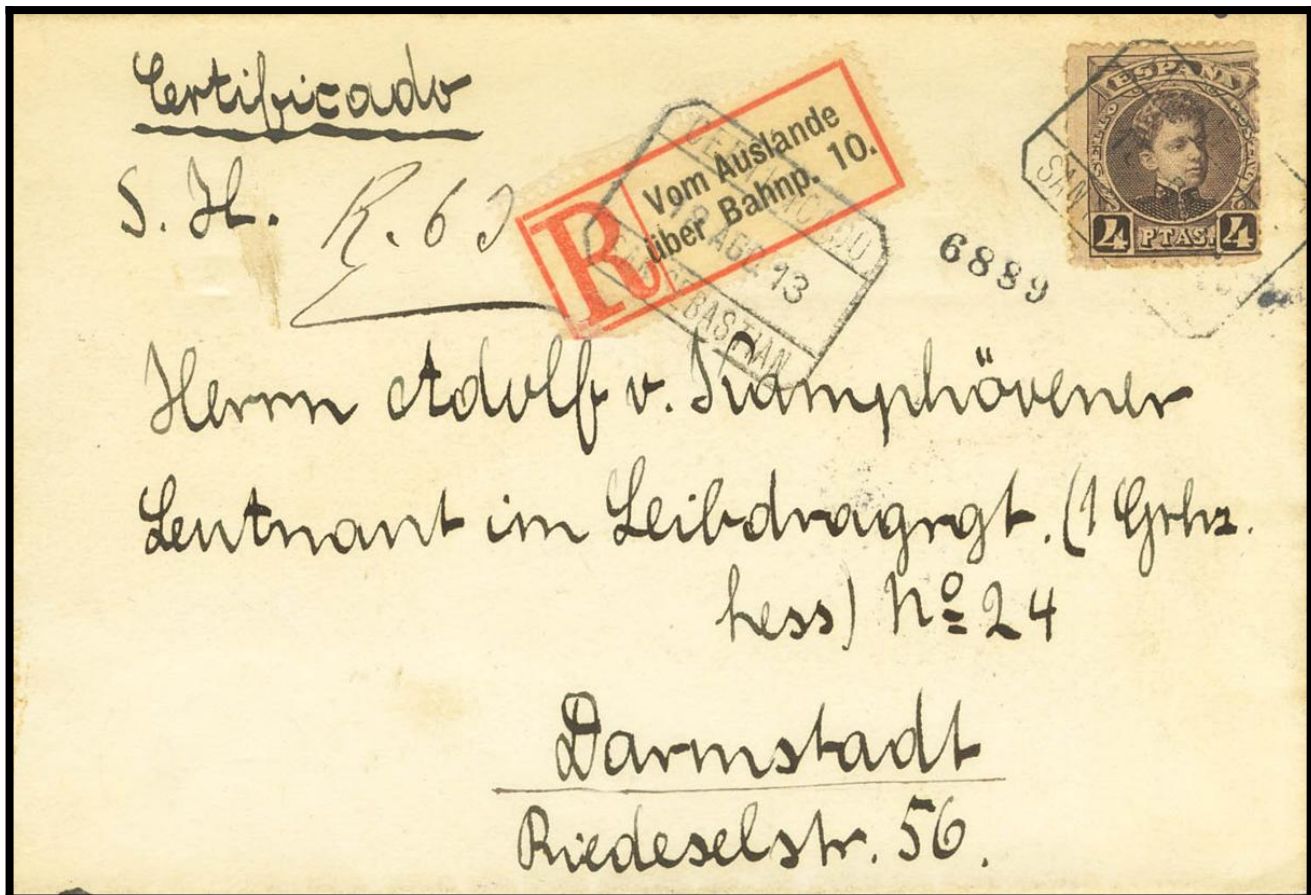 Certificado
S. H.
R. 63
R
Vom Auslande
über Bahnp. 10.
AGO 13
SAN SEBASTIAN
ESPAÑA
4 PTAS. 4
SAN
6889
Herrn Adolf v. Kamphövener
Leutnant im Leibdragrgt. (1 Grhz.
hess) No 24
Darmstadt
Riedeselstr. 56.